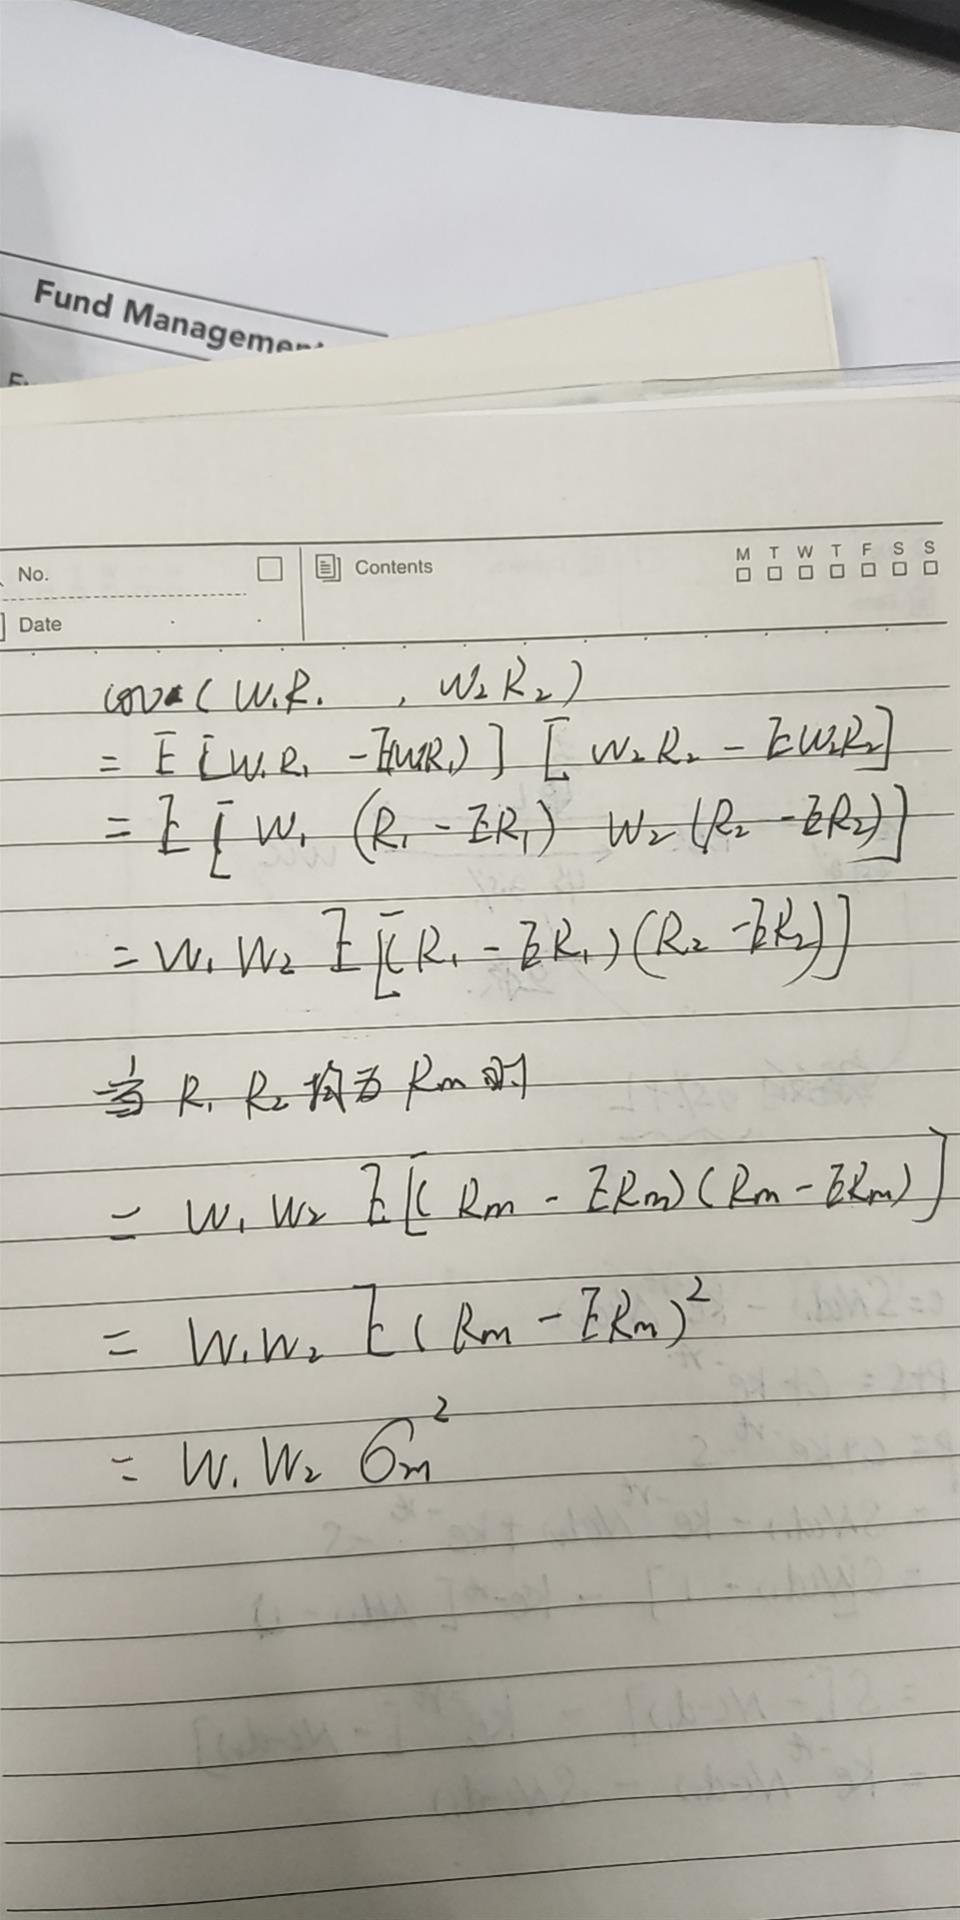 Fund Managemen
No.
Contents
M T W T F S S
Date
cov(W₁R₁ , W₂R₂)
= E[W₁R₁ - E(W₁R₁)] [W₂R₂ - EW₂R₂]
= E[W₁ (R₁ - ER₁) W₂ (R₂ - ER₂)]
= W₁ W₂ E[(R₁ - ER₁)(R₂ - ER₂)]
当 R₁ R₂ 均为 Rm 时
= W₁ W₂ E[(Rm - ERm)(Rm - ERm)]
= W₁W₂ E(Rm - ERm)²
= W₁ W₂ σm²